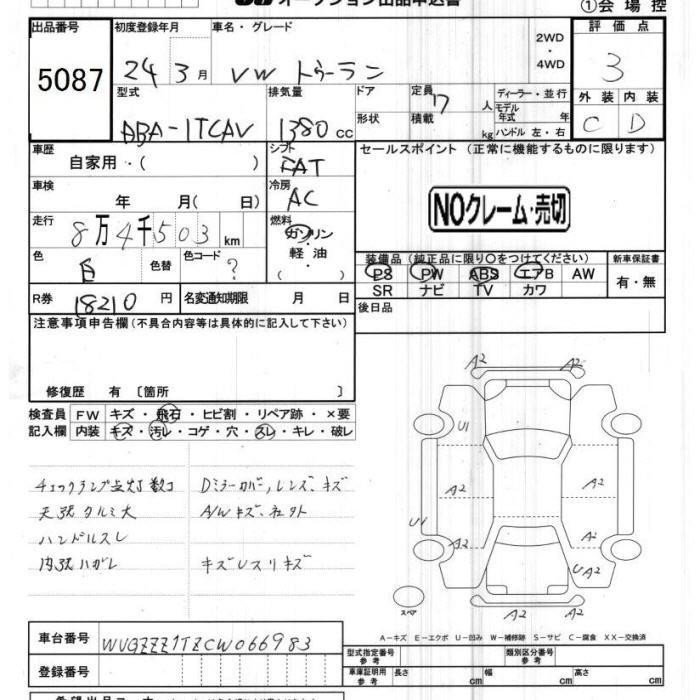 オークション出品申込書
①会場控
出品番号
5087
初度登録年月
24 3月
車名・グレード
VW トゥーラン
2WD
・
4WD
評価点
3
型式
ABA-1TCAV
排気量
1380 cc
ドア
形状
定員
7 人
積載
kg
ディーラー・並行
モデル年式 年
ハンドル 左・右
外装 内装
C D
車歴
自家用・( )
シフト
FAT
セールスポイント (正常に機能するものに限ります)
NOクレーム・売切
車検
年 月( 日)
冷房
AC
走行
8万4千503 km
燃料
ガソリン
・
軽油
・
( )
色
色替
色コード
?
装備品(純正品に限り○をつけてください)
PS PW ABS エアB AW
SR ナビ TV カワ
新車保証書
有・無
R券 18210 円
名変通知期限 月 日
後日品
注意事項申告欄(不具合内容等は具体的に記入して下さい)
修復歴 有 〔箇所 〕
検査員
記入欄
FW キズ・飛石・ヒビ割・リペア跡・×要
内装 キズ・汚レ・コゲ・穴・スレ・キレ・破レ
チェックランプ点灯数コ
天張タルミ大
ハンドルスレ
内張ハガレ
Dミラーカバー,レンズ、キズ
A/Wキズ、社外
キズUスリキズ
A2 A2
U1
A2 A2
U1
A2 A2
UA2
A2 A2
スペア
A-キズ E-エクボ U-凹み W-補修跡 S-サビ C-腐食 XX-交換済
車台番号
WVGZZZ1TZCW066983
登録番号
型式指定番号
参考
類別区分番号
参考
車庫証明用
参考
長さ cm
幅 cm
高さ cm